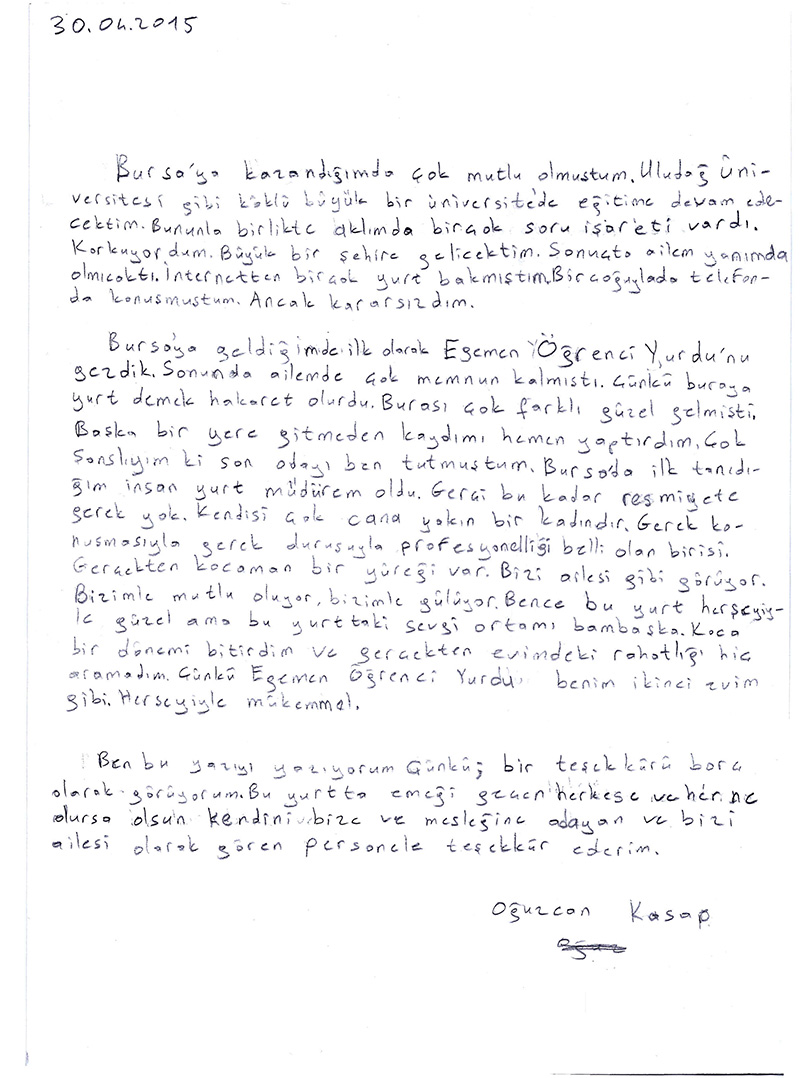 30.04.2015
Bursa'ya kazandığımda çok mutlu olmustum. Uludağ Üni-
versitesi gibi köklü büyük bir üniversite'de eğitime devam ede-
cektim. Bununla birlikte aklımda birçok soru işareti vardı.
Korkuyordum. Büyük bir şehire gelicektim. Sonuçta ailem yanımda
olmıcaktı. İnternetten birçok yurt bakmıştım. Bircoğuylada telefon-
da konusmustum. Ancak kararsızdım.
Bursa'ya geldiğimde ilk olarak Egemen Öğrenci Yurdu'nu
gezdik. Sonunda ailemde çok memnun kalmıstı. Çünkü buraya
yurt demek hakaret olurdu. Burası çok farklı güzel gelmisti.
Baska bir yere gitmeden kaydımı hemen yaptırdım. Çok
Sanslıyım ki son odayı ben tutmustum. Bursa'da ilk tanıdı-
ğım insan yurt müdürem oldu. Gerçi bu kadar resmiyete
gerek yok. Kendisi çok cana yakın bir kadındır. Gerek ko-
nusmasıyla gerek durusuyla profesyonelliği belli olan birisi.
Gerçekten kocaman bir yüreği var. Bizi ailesi gibi görüyor.
Bizimle mutlu oluyor, bizimle gülüyor. Bence bu yurt herşeyiy-
le güzel ama bu yurttaki sevgi ortamı bambaska. Koca
bir dönemi bitirdim ve gerçekten evimdeki rahatlığı hiç
aramadım. Çünkü Egemen Öğrenci Yurdu benim ikinci evim
gibi. Herseyiyle mükemmel.
Ben bu yazıyı yazıyorum Çünkü; bir teşekkürü borç
olarak görüyorum. Bu yurtta emeği geçen herkese ve her ne
olursa olsun kendini bize ve mesleğine adayan ve bizi
ailesi olarak gören personele teşekkür ederim.
Oğuzcan Kasap